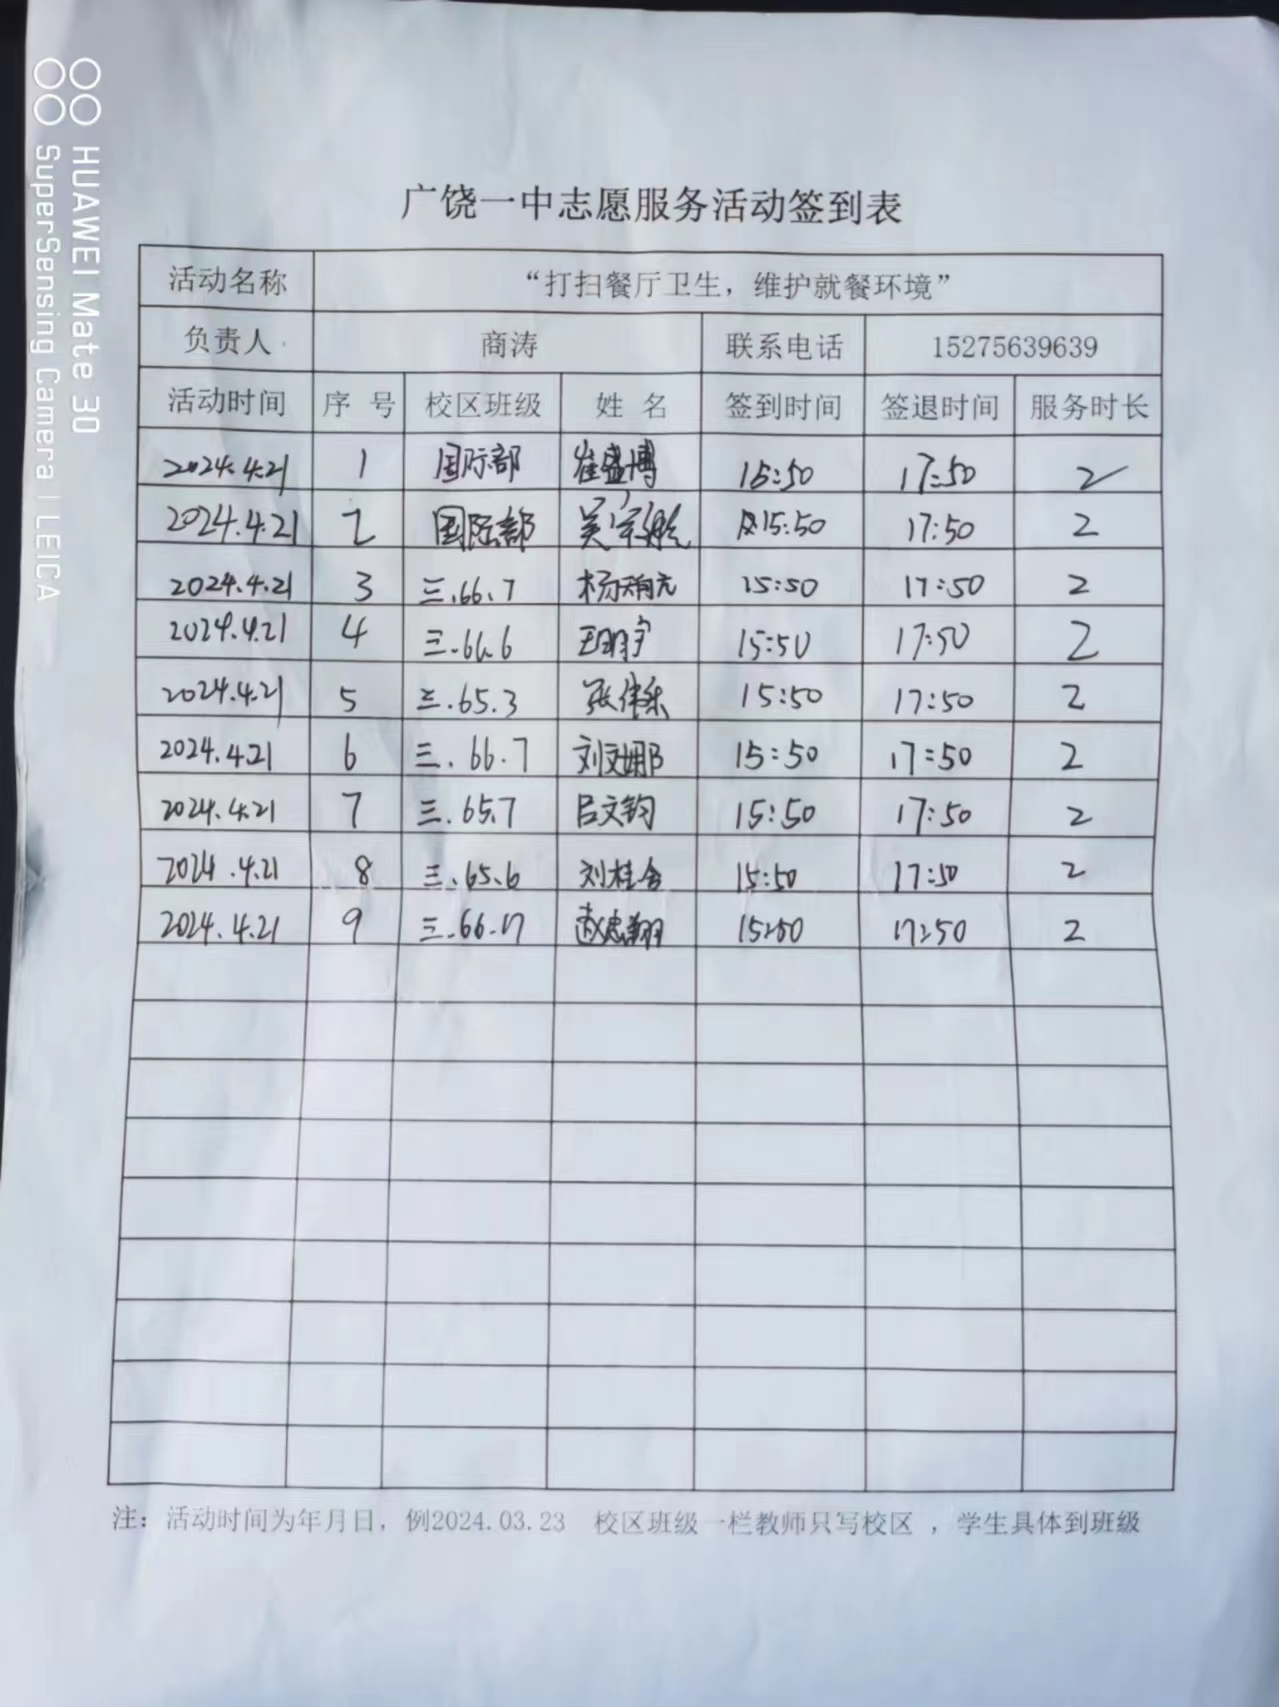 HUAWEI Mate 30
SuperSensing Camera | LEICA
广饶一中志愿服务活动签到表
活动名称 “打扫餐厅卫生，维护就餐环境”
负责人 商涛 联系电话 15275639639
活动时间 序 号 校区班级 姓 名 签到时间 签退时间 服务时长
2024.4.21 1 国际部 崔盛博 15:50 17:50 2
2024.4.21 2 国际部 吴宗航 15:50 17:50 2
2024.4.21 3 三.66.7 杨 15:50 17:50 2
2024.4.21 4 三.66.6 15:50 17:50 2
2024.4.21 5 三.65.3 张伟乐 15:50 17:50 2
2024.4.21 6 三.66.7 刘文娜 15:50 17:50 2
2024.4.21 7 三.65.7 吕文钧 15:50 17:50 2
2024.4.21 8 三.65.6 刘桂含 15:50 17:50 2
2024.4.21 9 三.66.17 赵忠翔 15:50 17:50 2
注：活动时间为年月日，例2024.03.23 校区班级一栏教师只写校区 ，学生具体到班级